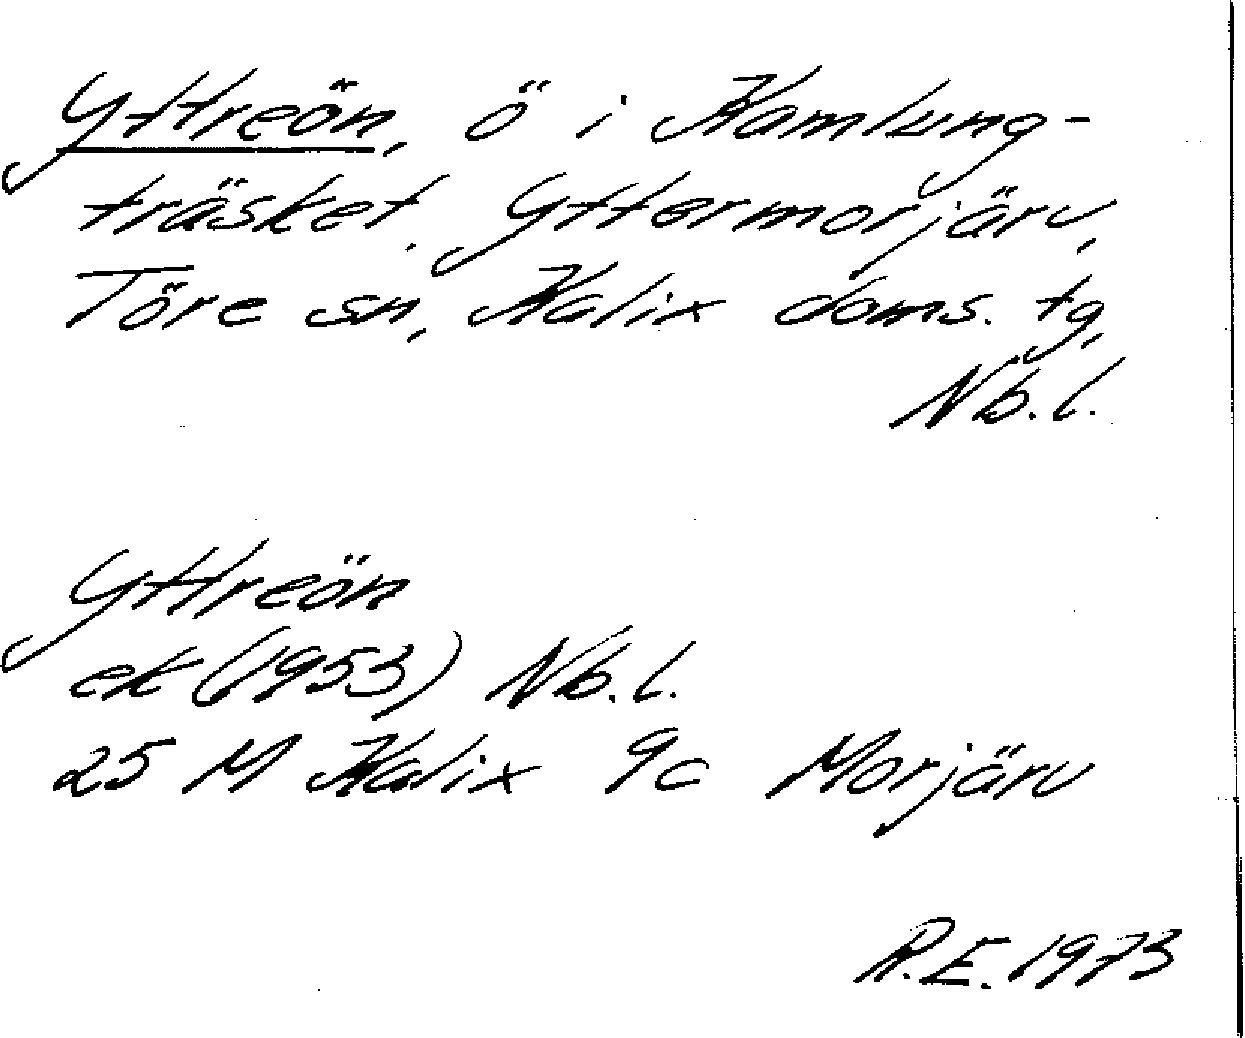 Yttreön, ö i Kamlung-
träsket, Yttermorjärv,
Töre sn, Kalix doms. tg,
Nb.l.
Yttreön
ek (1953) Nb.l.
25 M Kalix 9c Morjärv
R.E. 1973